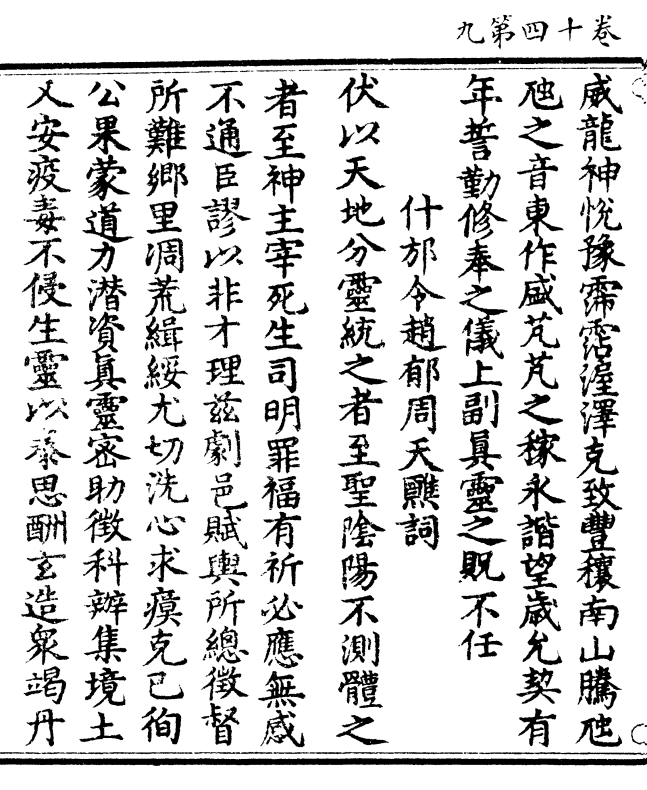 卷十四第九
威龍神悅豫霈霑渥澤克致豐穰南山騰虺
虺之音東作盛芃芃之稼永諧望歲允契有
年誓勤修奉之儀上副眞靈之貺不任
什邡令趙郁周天醮詞
伏以天地分靈統之者至聖陰陽不測體之
者至神主宰死生司明罪福有祈必應無感
不通臣謬以非才理茲劇邑賦輿所總徵督
所難鄉里凋荒緝綏尤切洗心求瘼克己徇
公果蒙道力潛資眞靈密助徵科辦集境土
乂安疫毒不侵生靈以泰思酬玄造衆竭丹